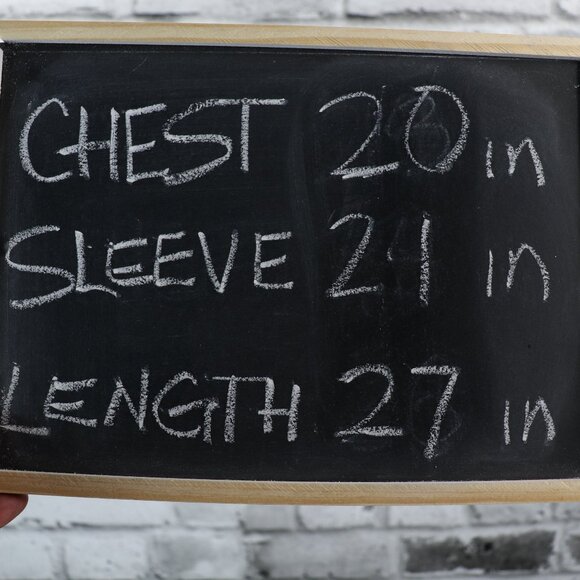 CHEST 20 in
SLEEVE 21 in
LENGTH 27 in